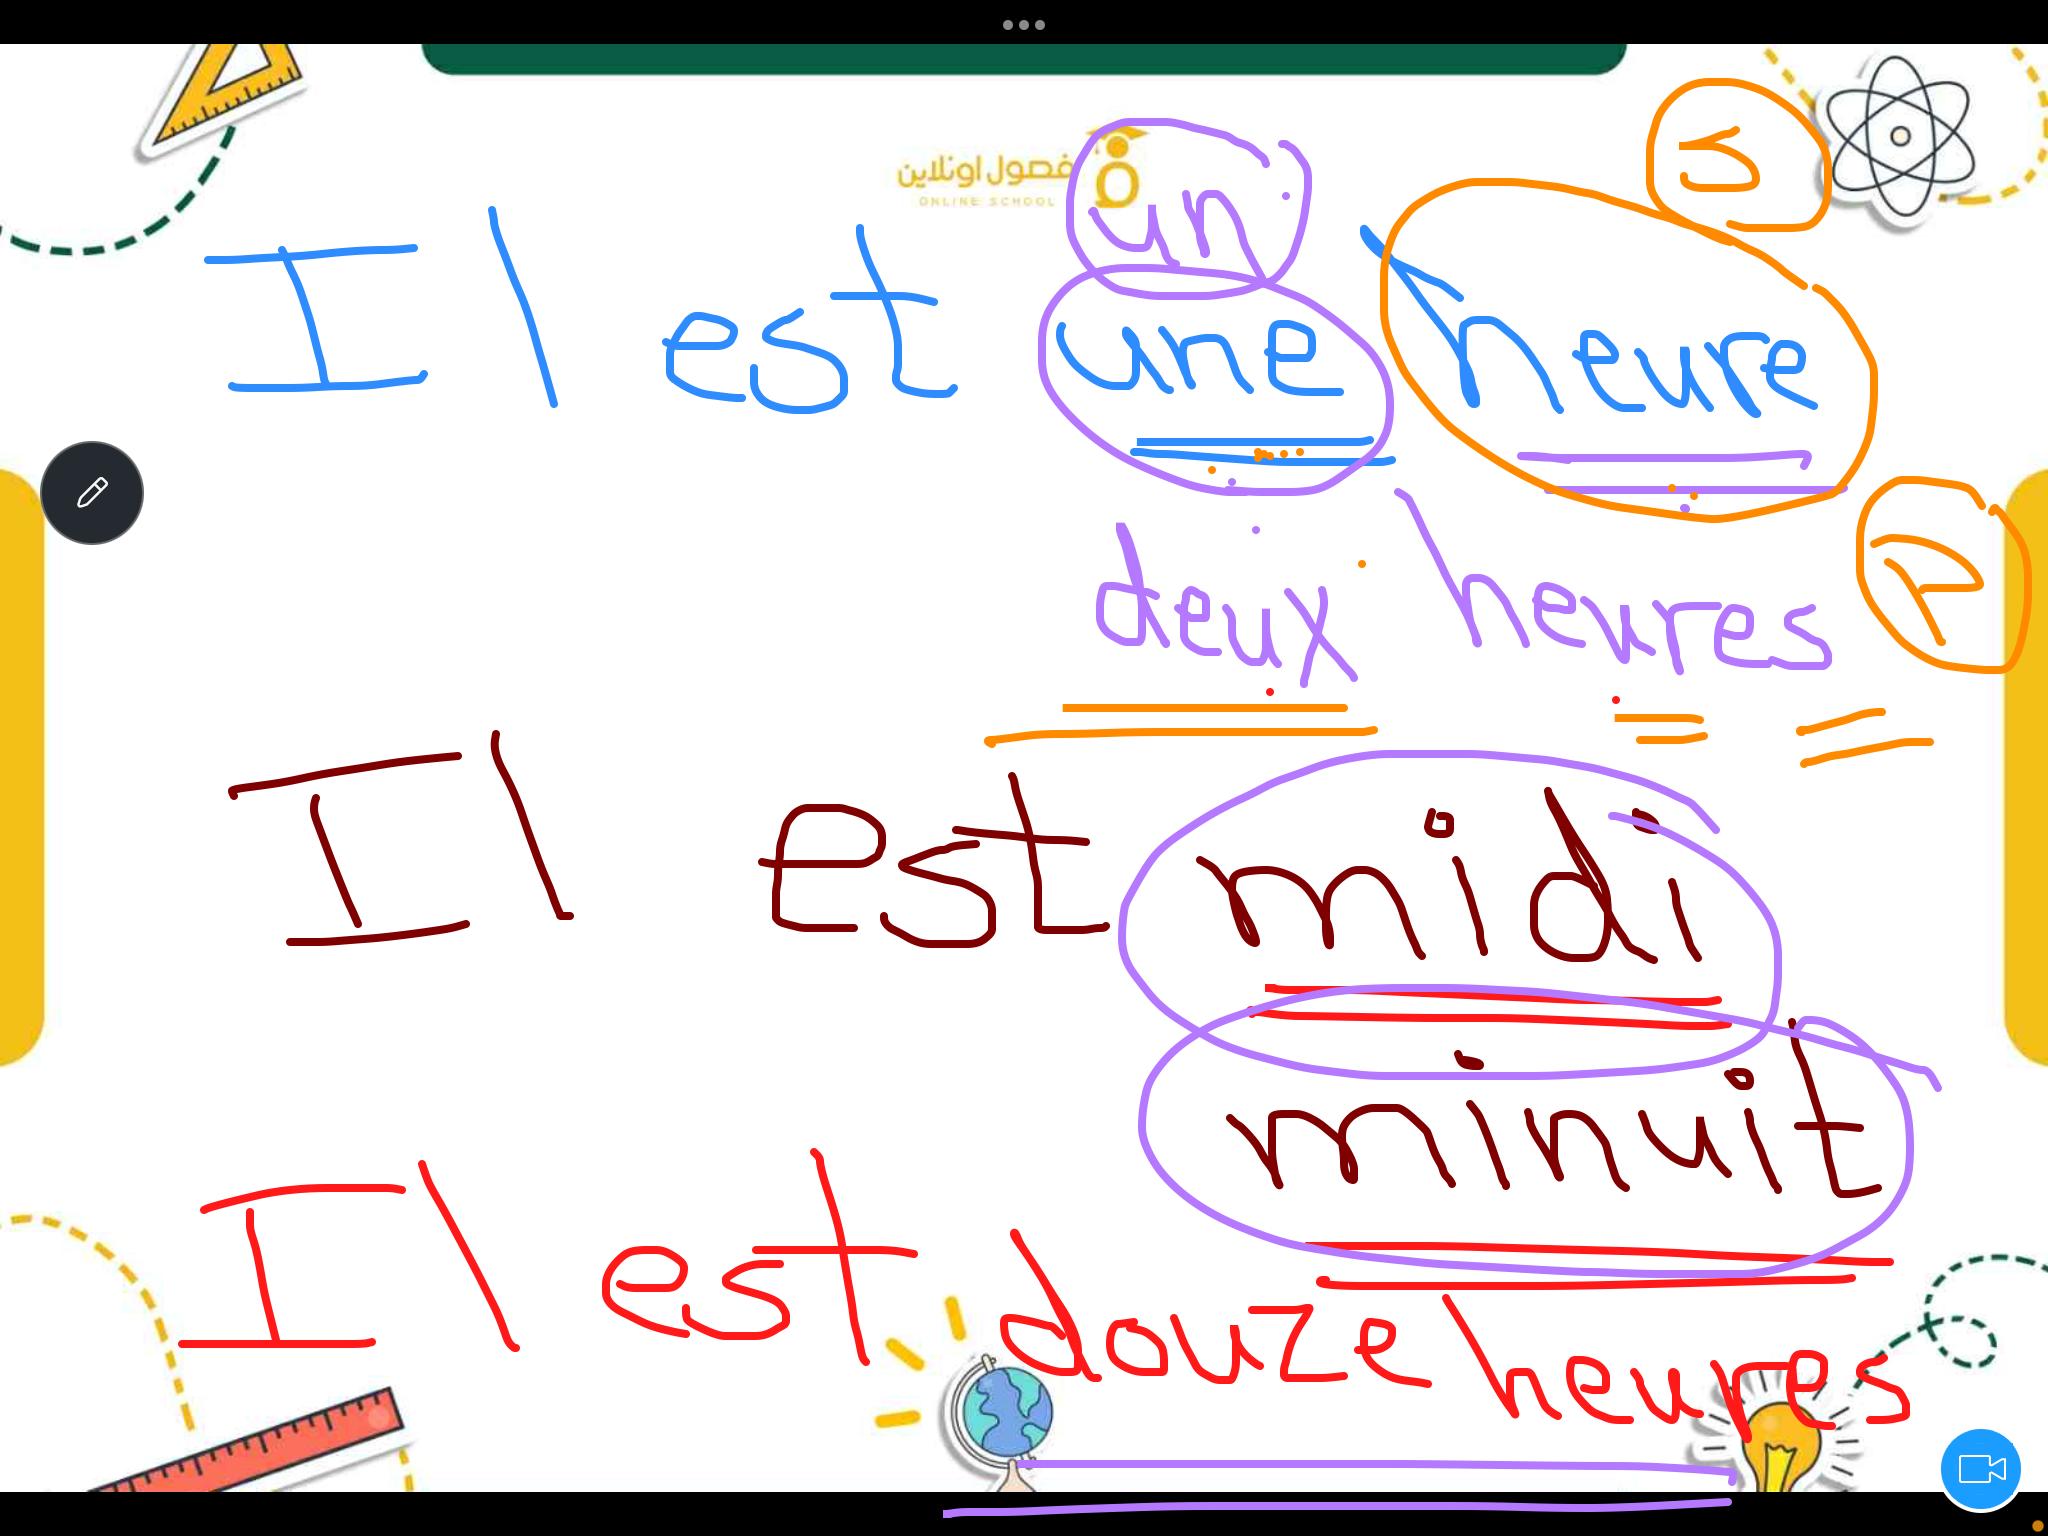 فصول اونلاين
ONLINE SCHOOL
S
un
Il est une heure
deux heures P
Il est midi
minuit
Il est douze heures